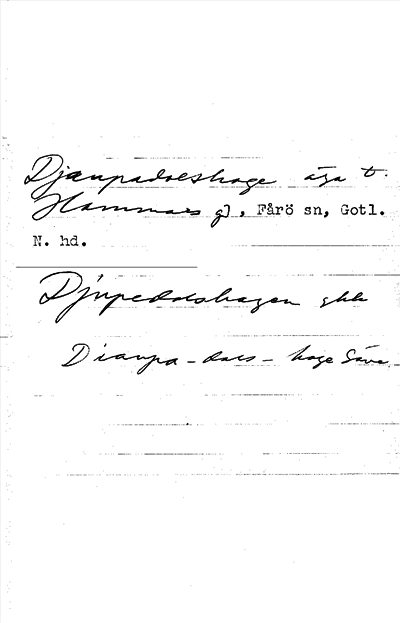 Djaupadaeshage äga t.
Hammars gd, Fårö sn, Gotl.
N. hd.
Djupedalshagen gkk
Diaupa-dals-hage Säve